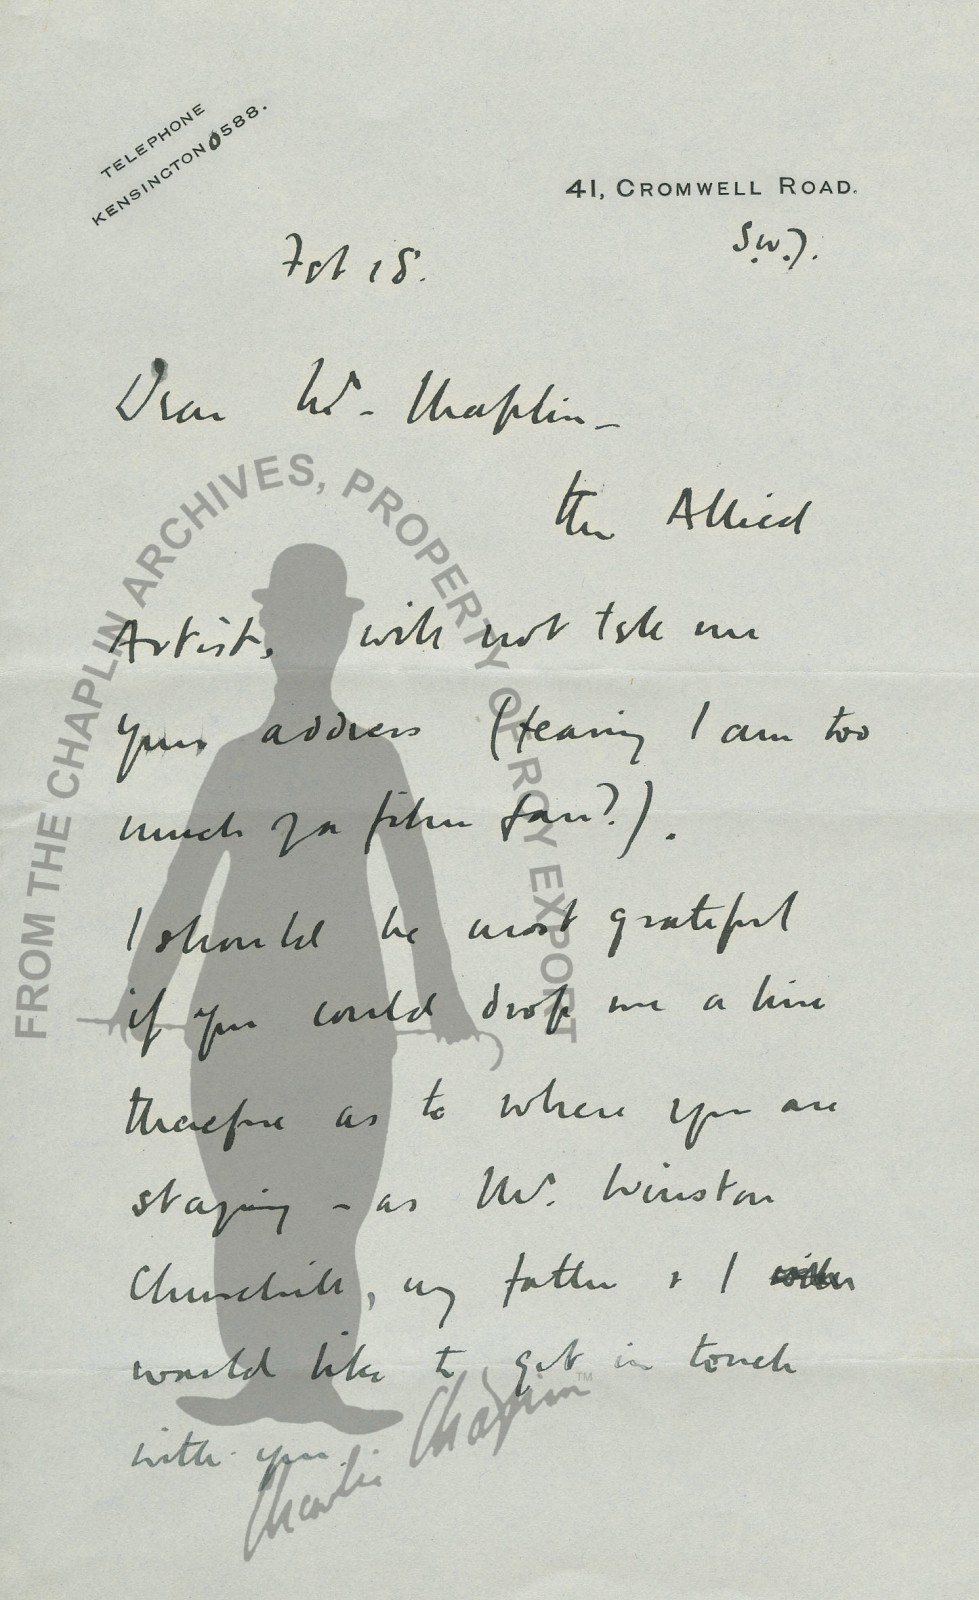 TELEPHONE
KENSINGTON 0588.
41, CROMWELL ROAD.
S.W.7.
Feb 18.
Dear Mr. Chaplin –
The Allied
Artists will not tell me
your address (fearing I am too
much of a film fan?).
I should be most grateful
if you could drop me a line
therefore as to where you are
staying – as Mr. Winston
Churchill, my father & I
would like to get in touch
with you.
FROM THE CHAPLIN ARCHIVES, PROPERTY OF ROY EXPORT
Charlie Chaplin™